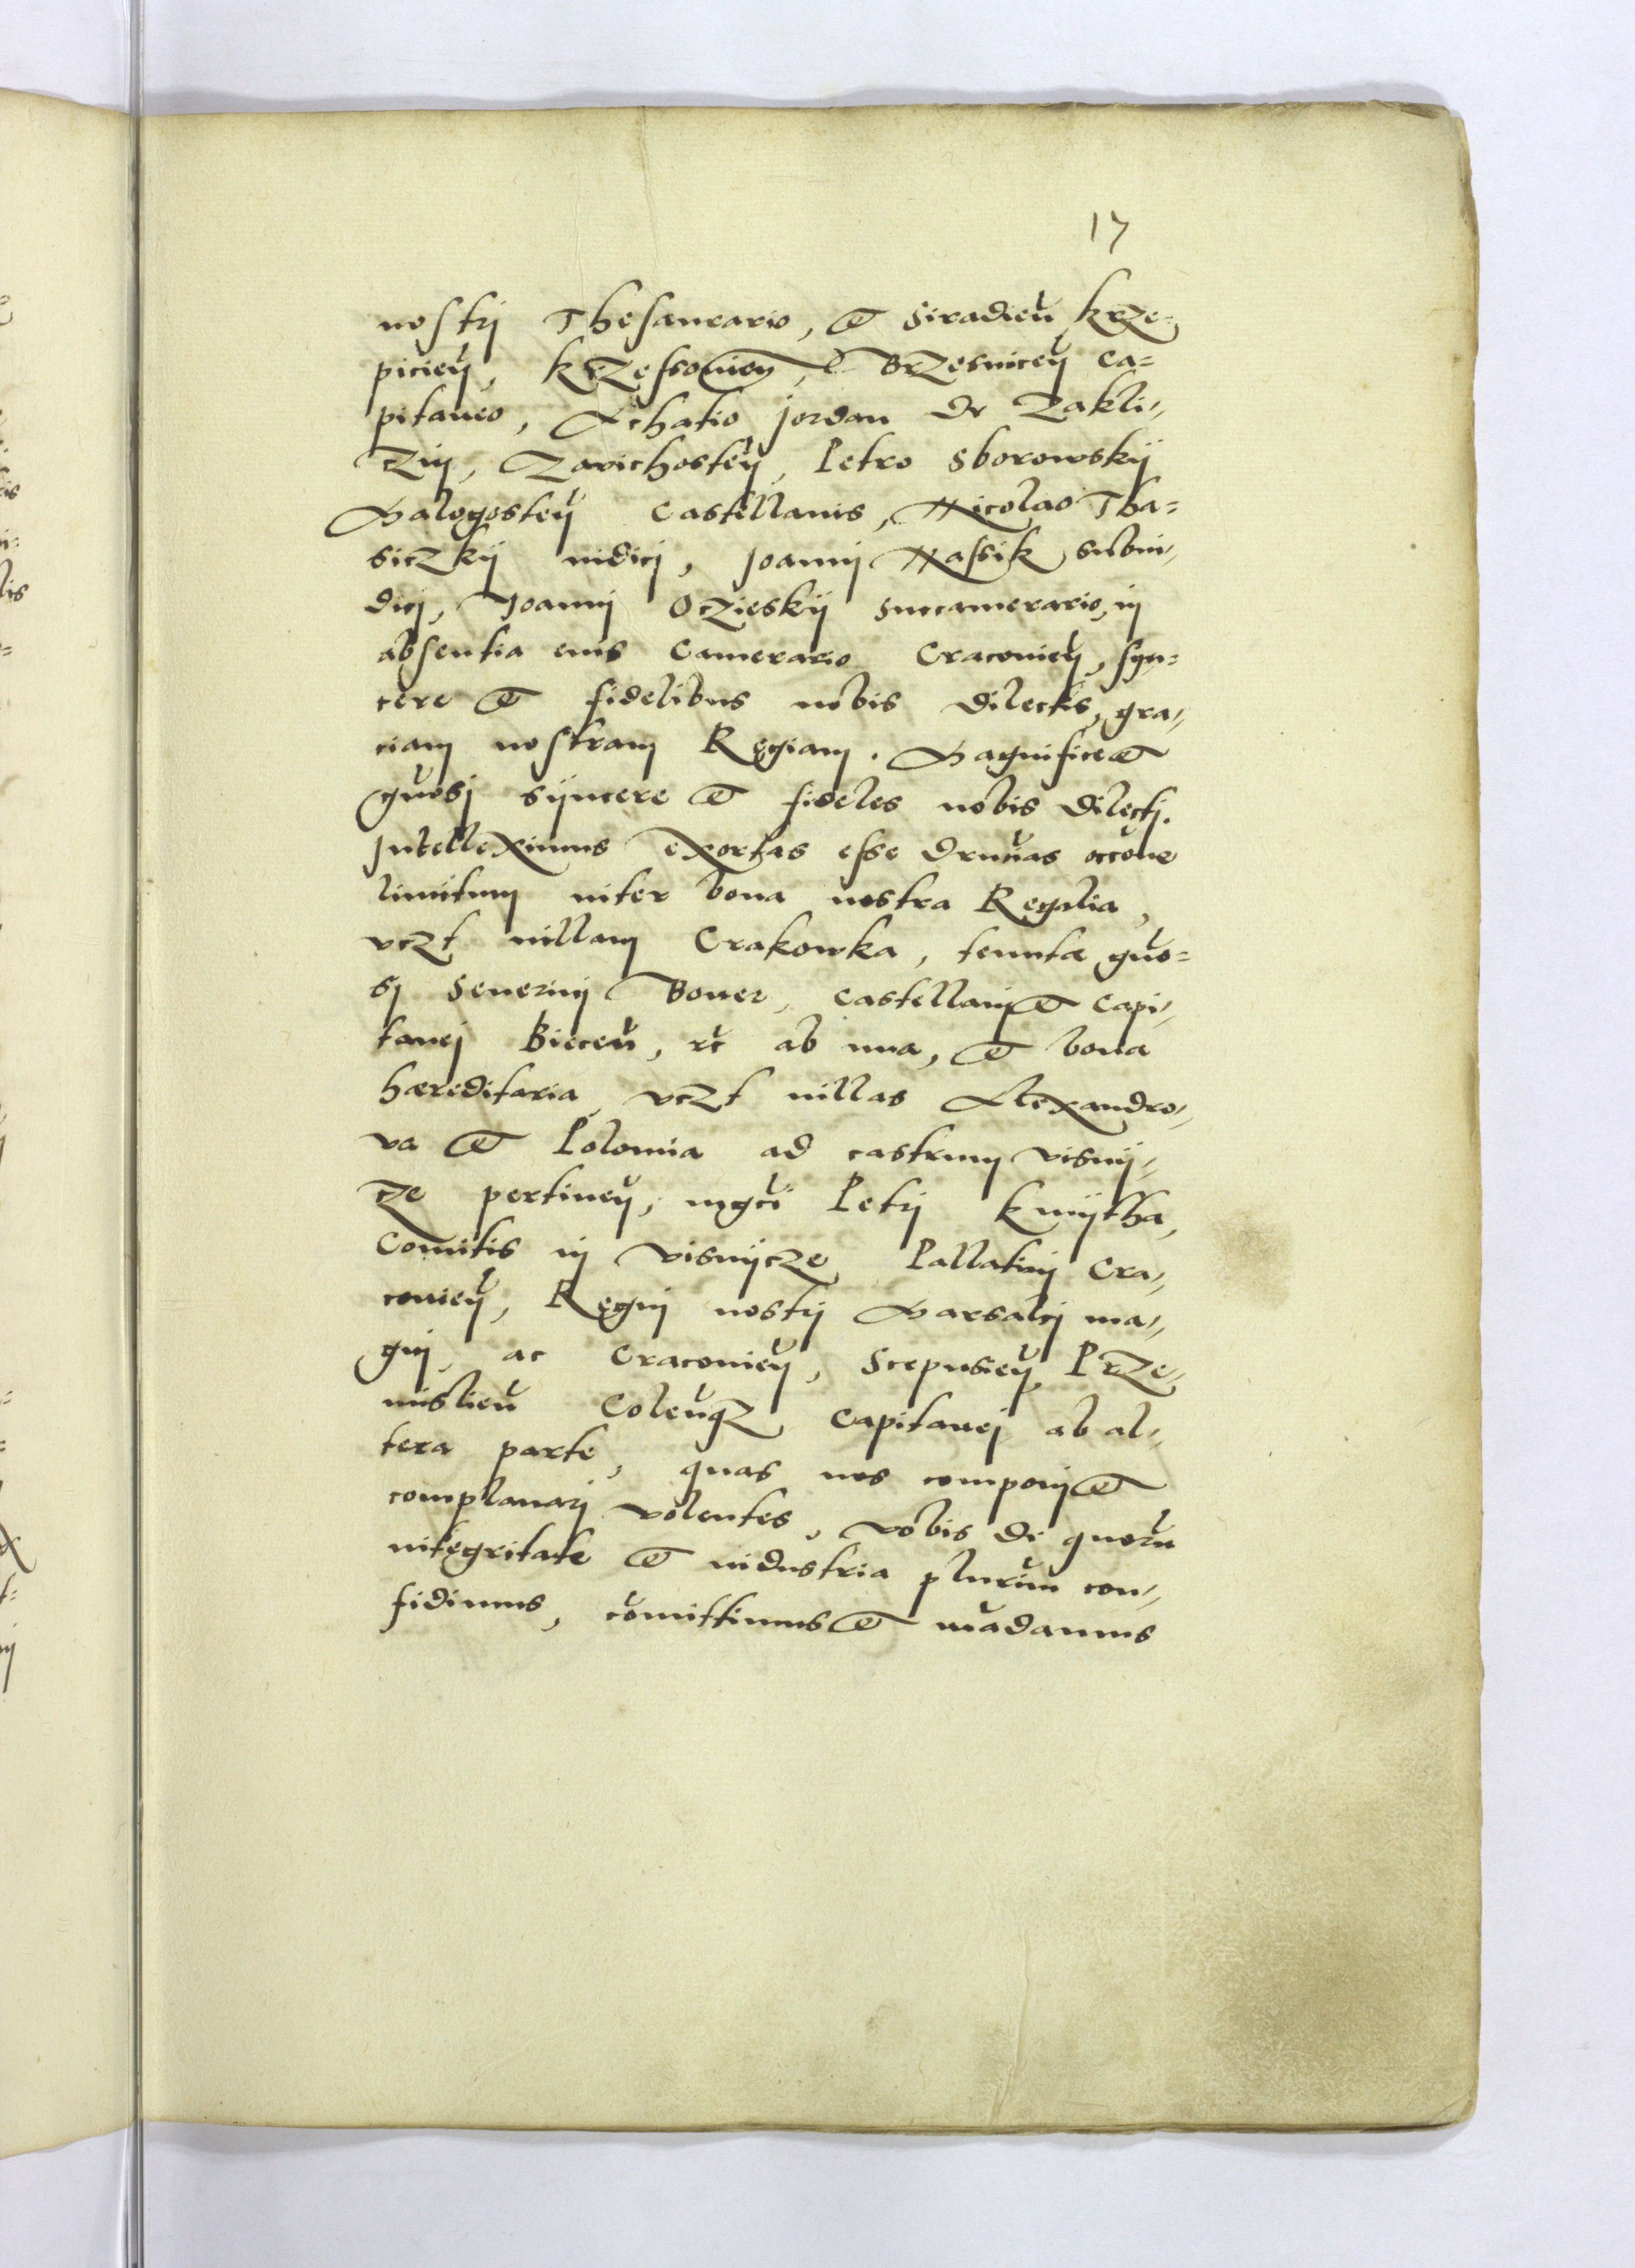 17
nostrj Thesaurario, et Siradieñ krze-
picieñ, krzessowieñ, et Brzesniceñ Ca-
pitaneo, Achatio Jordan de Zakli-
czin, Zavichosteñ, Petro Sborowskij
Malogosteñ Castellanis, Nicolao Tha-
siczkij iudicj, Joannj Rassik subiu-
dicj, Joannj Oczieskij Succamerario, in
absentia eius Camerario Cracovieñ, syn-
cere et fidelibus nobis dilectis, gra-
ciam nostram Regiam. Magnifice et
gnosj sijncere et fideles nobis dilectj.
Intelleximus exortas esse drnicias occoñe
limitum inter bona nostra Regalia,
vczt villam Crakowka, tenutæ gño-
sj Severinj Boner, Castellanj et Capi-
tanej Bieceñ, rc ab una, et bona
hæreditaria, vczt villas Alexandro-
va et Polomia ad castrum visnij-
cze pertineñ, mgci Petrj kmijtha,
Comitis in Visnijcze, Pallatinj Cra-
covieñ, Regnj nostrj Marsalcj ma-
gnj, ac Cracovieñ, Scepusieñ, Prze-
mislieñ Coleñqz Capitanej ab al-
tera parte, quas nos componj et
complanarj volentes, vobis de quorũ
integritate et industria plurimũ con-
fidimus, cõmittimus et mãdamus